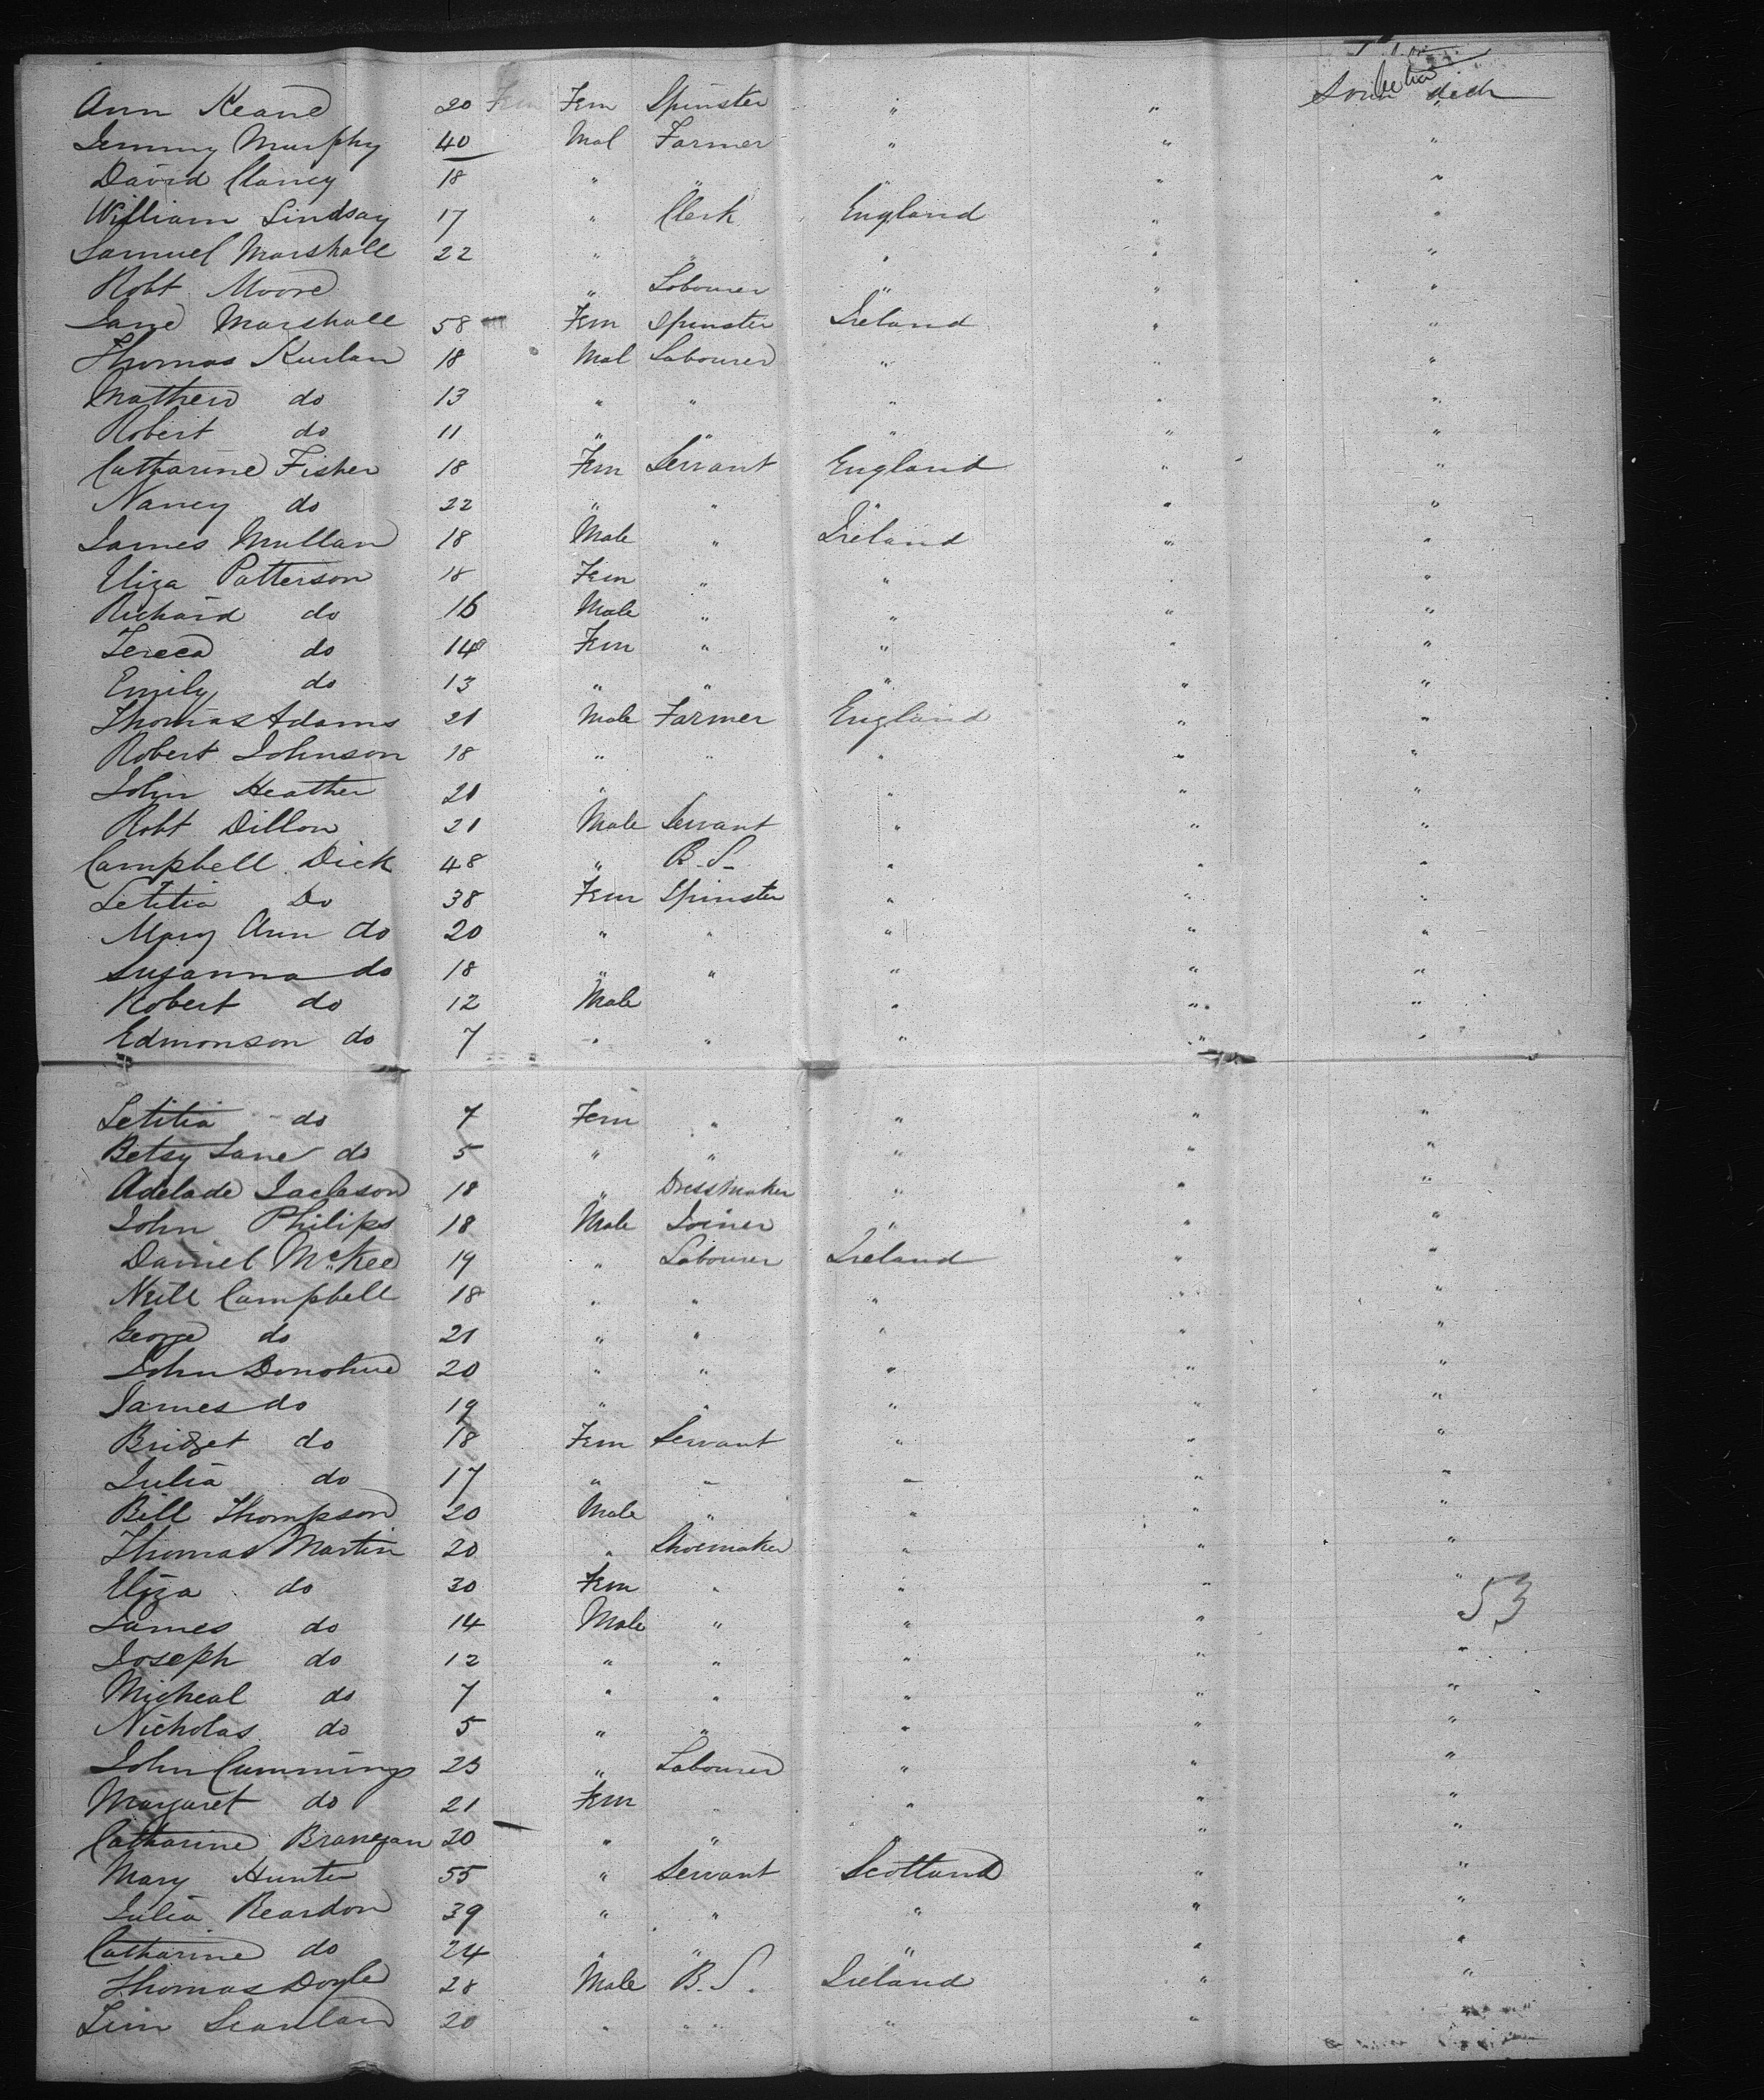 Ann Keane 20 Fem Fem Spinster " " Son died
Jemmy Murphy 40 Mal Farmer " " "
David Clancy 18 " " " " "
William Lindsay 17 " Clerk England " "
Samuel Marshall 22 " " " " "
Robt Moore " Labourer " " "
Jane Marshall 58 Fem Spinster Ireland " "
Thomas Kurlan 18 Mal Labourer " " "
Mathew do 13 " " " " "
Robert do 11 " " " " "
Catharine Fisher 18 Fem Servant England " "
Nancy do 22 " " " " "
James Mullan 18 Male " Ireland " "
Eliza Patterson 18 Fem " " " "
Richard do 16 Male " " " "
Tereca do 14 Fem " " " "
Emily do 13 " " " " "
Thomas Adams 21 Male Farmer England " "
Robert Johnson 18 " " " " "
John Heather 21 " " " "
Robt Dillon 21 Male Servant " " "
Campbell Dick 48 " B.S. " " "
Letitia Do 38 Fem Spinster " " "
Mary Ann do 20 " " " " "
Susanna do 18 " " " " "
Robert do 12 Male " " "
Edmonson do 7 " " " " "
Letitia do 7 Fem " " " "
Betsy Jane do 5 " " " " "
Adelade Jackson 18 " Dressmaker " " "
John Philips 18 Male Joiner " " "
Daniel McKee 19 " Labourer Ireland " "
Neill Campbell 18 " " " " "
George do 21 " " " " "
John Donohue 20 " " " " "
James do 19 " " " " "
Bridget do 18 Fem Servant " " "
Julia do 17 " " " " "
Bill Thompson 20 Male " " " "
Thomas Martin 20 " Shoemaker " " "
Eliza do 30 Fem " " " "
53
James do 14 Male " " " "
Joseph do 12 " " " " "
Micheal do 7 " " " " "
Nicholas do 5 " " " " "
John Cummings 23 " Labourer " " "
Margaret do 21 Fem " " " "
Catharine Branegan 20 " " " " "
Mary Hunter 55 " Servant Scotland " "
Julia Reardon 39 " " " " "
Catharine do 24 " " " " "
Thomas Doyle 28 Male B.S. Ireland " "
Jim Scanlan 20 " " " " "